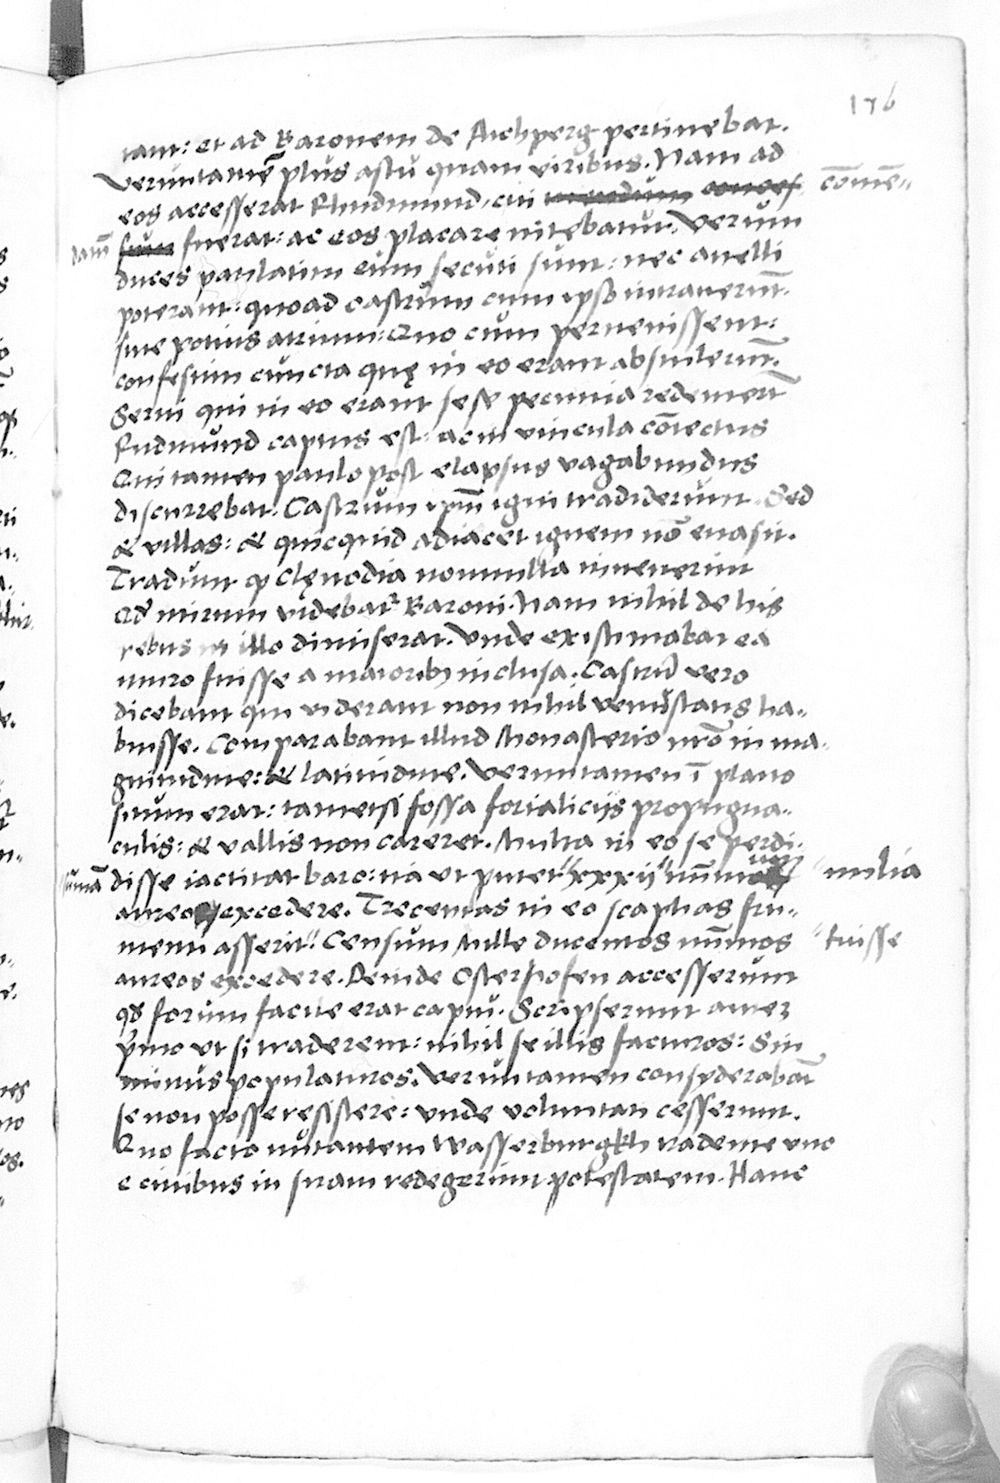 176
tant: et ad Baronem de Aichperg pertinebat.
Veruntamē plus astu quam viribus. Nam ad
eos accesserat Rhudmund, cui com̄en„
datū fuerat: ac eos placare nitebatur. Verum
duces paulatim eum secuti sunt: nec auelli
poterant: quoad castrum cum ipso intrauerūt.
siue potius atrium: Quo cum peruenissent:
confestim cuncta quę in eo erant abstulerūt.
Serui qui in eo erant sese pecunia redemerūt
Rudmund captus est: ac in vincula cōiectus
Qui tamen paulo post elapsus vagabundus
discurrebat. Castrum ipm̄ igni tradiderunt. Sed
& villas: & quicquid adiacet ignem nō euasit.
Tradunt ꝙ clęnodia nonnulla inuenerint
Qd̄ mirum videbat᷑ Baroni. Nam nihil de his
rebus in illo dimiserat. Vnde existimabat ea
muro fuisse a maioribꝫ inclusa. Castrū vero
dicebant qui viderant non nihil venustatis ha„
buisse. Comparabant illud Monasterio nr̄o in ma„
gnitudine: & latitudine. Veruntamen ī plano
situm erat: tametsi fossa forialicijs propugna„
culis: & vallis non careret. Multa in eo se perdi„
disse iactitat baro: ita vt putet "xxxij" num̄os "milia
sum̄ā
aureos excedere. Trecentas in eo scaphas fru„
menti asserit" Censum Mille ducentos num̄os "fuisse
aureos excedere. Deinde Osterhofen accesserunt
qd̄ forum facile erat captu. Scripserunt autem
primo vt si traderent: nihil se illis facturos: Sin
minus populaturos. Veruntamen consyderabāt
se non posse resistere: vnde voluntati cesserunt.
Quo facto nutantem Wasserburgkh tradente vno
e ciuibus in suam redegerunt potestatem. Hanc